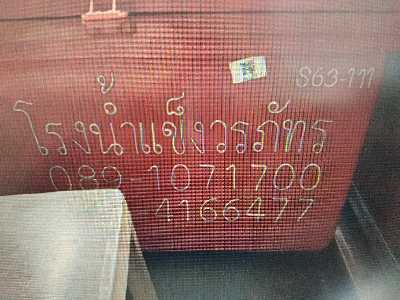 S63-111
โรงน้ำแข็งวรภัทร
089-1071700
-4166477